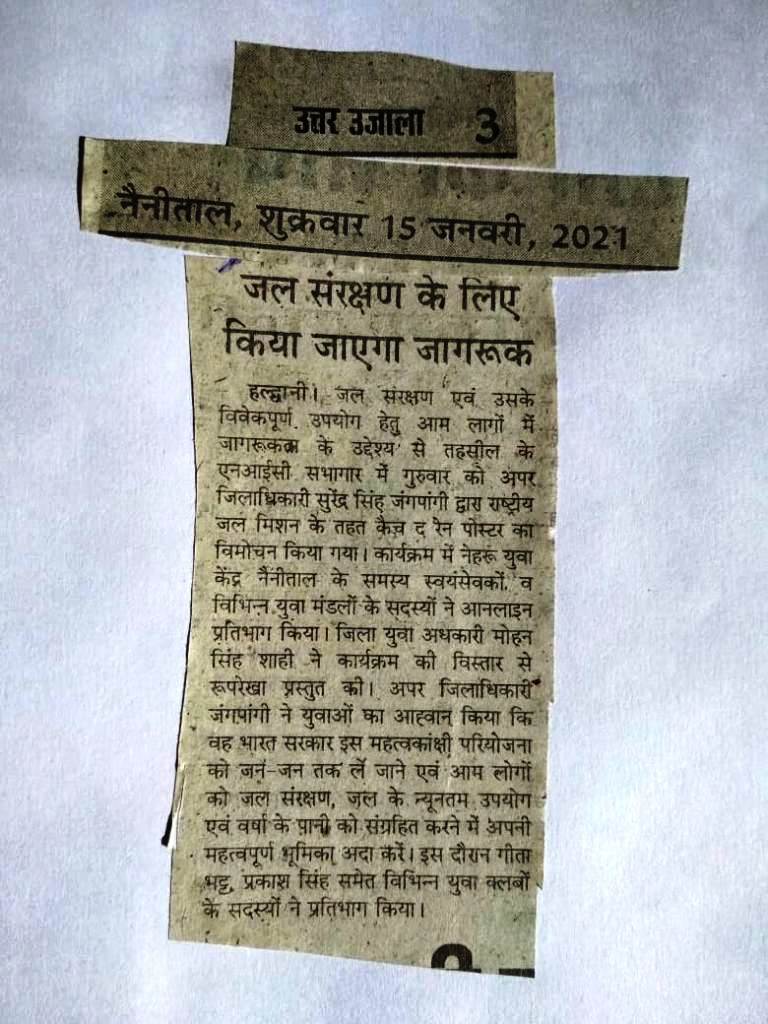 उत्तर उजाला 3
नैनीताल, शुक्रवार 15 जनवरी, 2021
जल संरक्षण के लिए
किया जाएगा जागरूक
हल्द्वानी। जल संरक्षण एवं उसके
विवेकपूर्ण उपयोग हेतु आम लागों में
जागरूकता के उद्देश्य से तहसील के
एनआईसी सभागार में गुरुवार को अपर
जिलाधिकारी सुरेंद्र सिंह जंगपांगी द्वारा राष्ट्रीय
जल मिशन के तहत कैच द रेन पोस्टर का
विमोचन किया गया। कार्यक्रम में नेहरू युवा
केंद्र नैनीताल के समस्य स्वयंसेवकों व
विभिन्न युवा मंडलों के सदस्यों ने आनलाइन
प्रतिभाग किया। जिला युवा अधकारी मोहन
सिंह शाही ने कार्यक्रम की विस्तार से
रूपरेखा प्रस्तुत की। अपर जिलाधिकारी
जंगपांगी ने युवाओं का आह्वान किया कि
वह भारत सरकार इस महत्वकांक्षी परियोजना
को जन-जन तक ले जाने एवं आम लोगों
को जल संरक्षण, जल के न्यूनतम उपयोग
एवं वर्षा के पानी को संग्रहित करने में अपनी
महत्वपूर्ण भूमिका अदा करें। इस दौरान गीता
भट्ट, प्रकाश सिंह समेत विभिन्न युवा क्लबों
के सदस्यों ने प्रतिभाग किया।